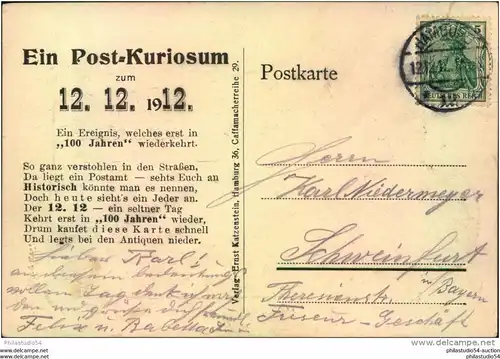 Ein Post-Kuriosum
zum
12. 12. 1912.
Ein Ereignis, welches erst in
„100 Jahren“ wiederkehrt.
So ganz verstohlen in den Straßen,
Da liegt ein Postamt — sehts Euch an
Historisch könnte man es nennen,
Doch heute sieht's ein Jeder an.
Der 12. 12 — ein seltner Tag
Kehrt erst in „100 Jahren“ wieder,
Drum kaufet diese Karte schnell
Und legts bei den Antiquen nieder.
Lieber Karl!
Tag
Felix u. Babette
Verlag: Ernst Katzenstein, Hamburg 36, Caffamacherreihe 29.
Postkarte
5
HAMBURG
12.12.12
DEUTSCHES REICH
Herrn
Karl Niedermeyer
Schweinfurt
in Bayern
Theresienstr.
Friseur-Geschäft
philastudio54-auction
Philastudio54
www.delcampe.net
philastudio54-auction